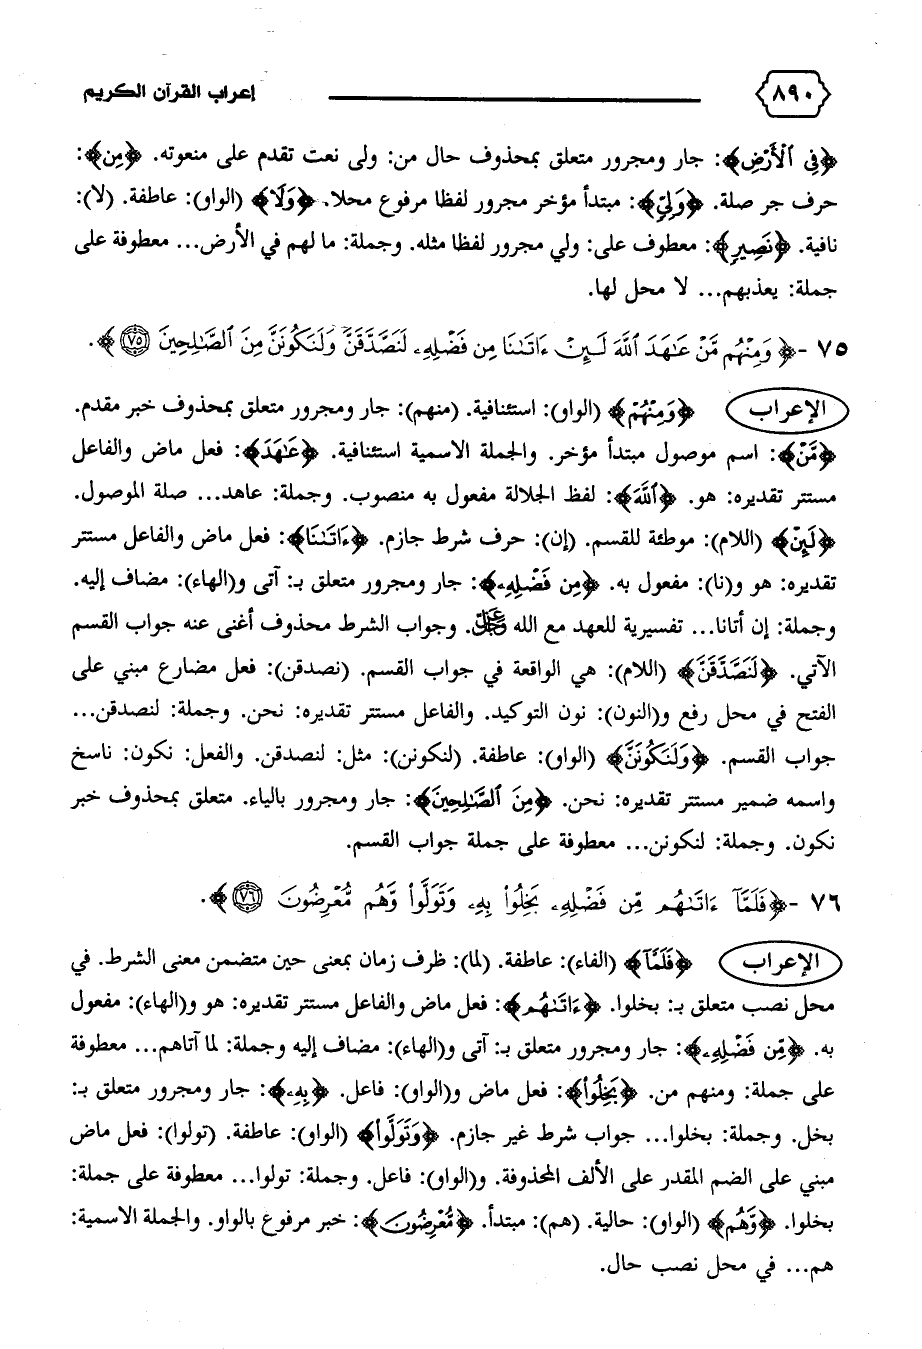 ٨٩٠ إعراب القرآن الكريم
﴿فِي الْأَرْضِ﴾: جار ومجرور متعلق بمحذوف حال من: ولى نعت تقدم على منعوته. ﴿مِن﴾:
حرف جر صلة. ﴿وَلِيٍّ﴾: مبتدأ مؤخر مجرور لفظا مرفوع محلا. ﴿وَلَا﴾ (الواو): عاطفة. (لا):
نافية. ﴿نَصِيرٍ﴾: معطوف على: ولي مجرور لفظا مثله. وجملة: ما لهم في الأرض... معطوفة على
جملة: يعذبهم... لا محل لها.
٧٥ -﴿ وَمِنْهُم مَّنْ عَٰهَدَ ٱللَّهَ لَئِنْ ءَاتَىٰنَا مِن فَضْلِهِۦ لَنَصَّدَّقَنَّ وَلَنَكُونَنَّ مِنَ ٱلصَّٰلِحِينَ ٧٥ ﴾.
الإعراب ﴿وَمِنْهُم﴾ (الواو): استئنافية. (منهم): جار ومجرور متعلق بمحذوف خبر مقدم.
﴿مَّنْ﴾: اسم موصول مبتدأ مؤخر. والجملة الاسمية استئنافية. ﴿عَٰهَدَ﴾: فعل ماض والفاعل
مستتر تقديره: هو. ﴿ٱللَّهَ﴾: لفظ الجلالة مفعول به منصوب. وجملة: عاهد... صلة الموصول.
﴿لَئِنْ﴾ (اللام): موطئة للقسم. (إن): حرف شرط جازم. ﴿ءَاتَىٰنَا﴾: فعل ماض والفاعل مستتر
تقديره: هو و(نا): مفعول به. ﴿مِن فَضْلِهِۦ﴾: جار ومجرور متعلق بـ: آتى و(الهاء): مضاف إليه.
وجملة: إن أتانا... تفسيرية للعهد مع الله ﷿. وجواب الشرط محذوف أغنى عنه جواب القسم
الآتي. ﴿لَنَصَّدَّقَنَّ﴾ (اللام): هي الواقعة في جواب القسم. (نصدقن): فعل مضارع مبني على
الفتح في محل رفع و(النون): نون التوكيد. والفاعل مستتر تقديره: نحن. وجملة: لنصدقن...
جواب القسم. ﴿وَلَنَكُونَنَّ﴾ (الواو): عاطفة. (لنكونن): مثل: لنصدقن. والفعل: نكون: ناسخ
واسمه ضمير مستتر تقديره: نحن. ﴿مِنَ ٱلصَّٰلِحِينَ﴾: جار ومجرور بالياء. متعلق بمحذوف خبر
نكون. وجملة: لنكونن... معطوفة على جملة جواب القسم.
٧٦ -﴿فَلَمَّآ ءَاتَىٰهُم مِّن فَضْلِهِۦ بَخِلُوا۟ بِهِۦ وَتَوَلَّوا۟ وَّهُم مُّعْرِضُونَ ٧٦ ﴾.
الإعراب ﴿فَلَمَّآ﴾ (الفاء): عاطفة. (لما): ظرف زمان بمعنى حين متضمن معنى الشرط. في
محل نصب متعلق بـ: بخلوا. ﴿ءَاتَىٰهُم﴾: فعل ماض والفاعل مستتر تقديره: هو و(الهاء): مفعول
به. ﴿مِّن فَضْلِهِۦ﴾: جار ومجرور متعلق بـ: آتى و(الهاء): مضاف إليه وجملة: لما آتاهم... معطوفة
على جملة: ومنهم من. ﴿بَخِلُوا۟﴾: فعل ماض و(الواو): فاعل. ﴿بِهِۦ﴾: جار ومجرور متعلق بـ:
بخل. وجملة: بخلوا... جواب شرط غير جازم. ﴿وَتَوَلَّوا۟﴾ (الواو): عاطفة. (تولوا): فعل ماض
مبني على الضم المقدر على الألف المحذوفة. و(الواو): فاعل. وجملة: تولوا... معطوفة على جملة:
بخلوا. ﴿وَّهُم﴾ (الواو): حالية. (هم): مبتدأ. ﴿مُّعْرِضُونَ﴾: خبر مرفوع بالواو. والجملة الاسمية:
هم... في محل نصب حال.